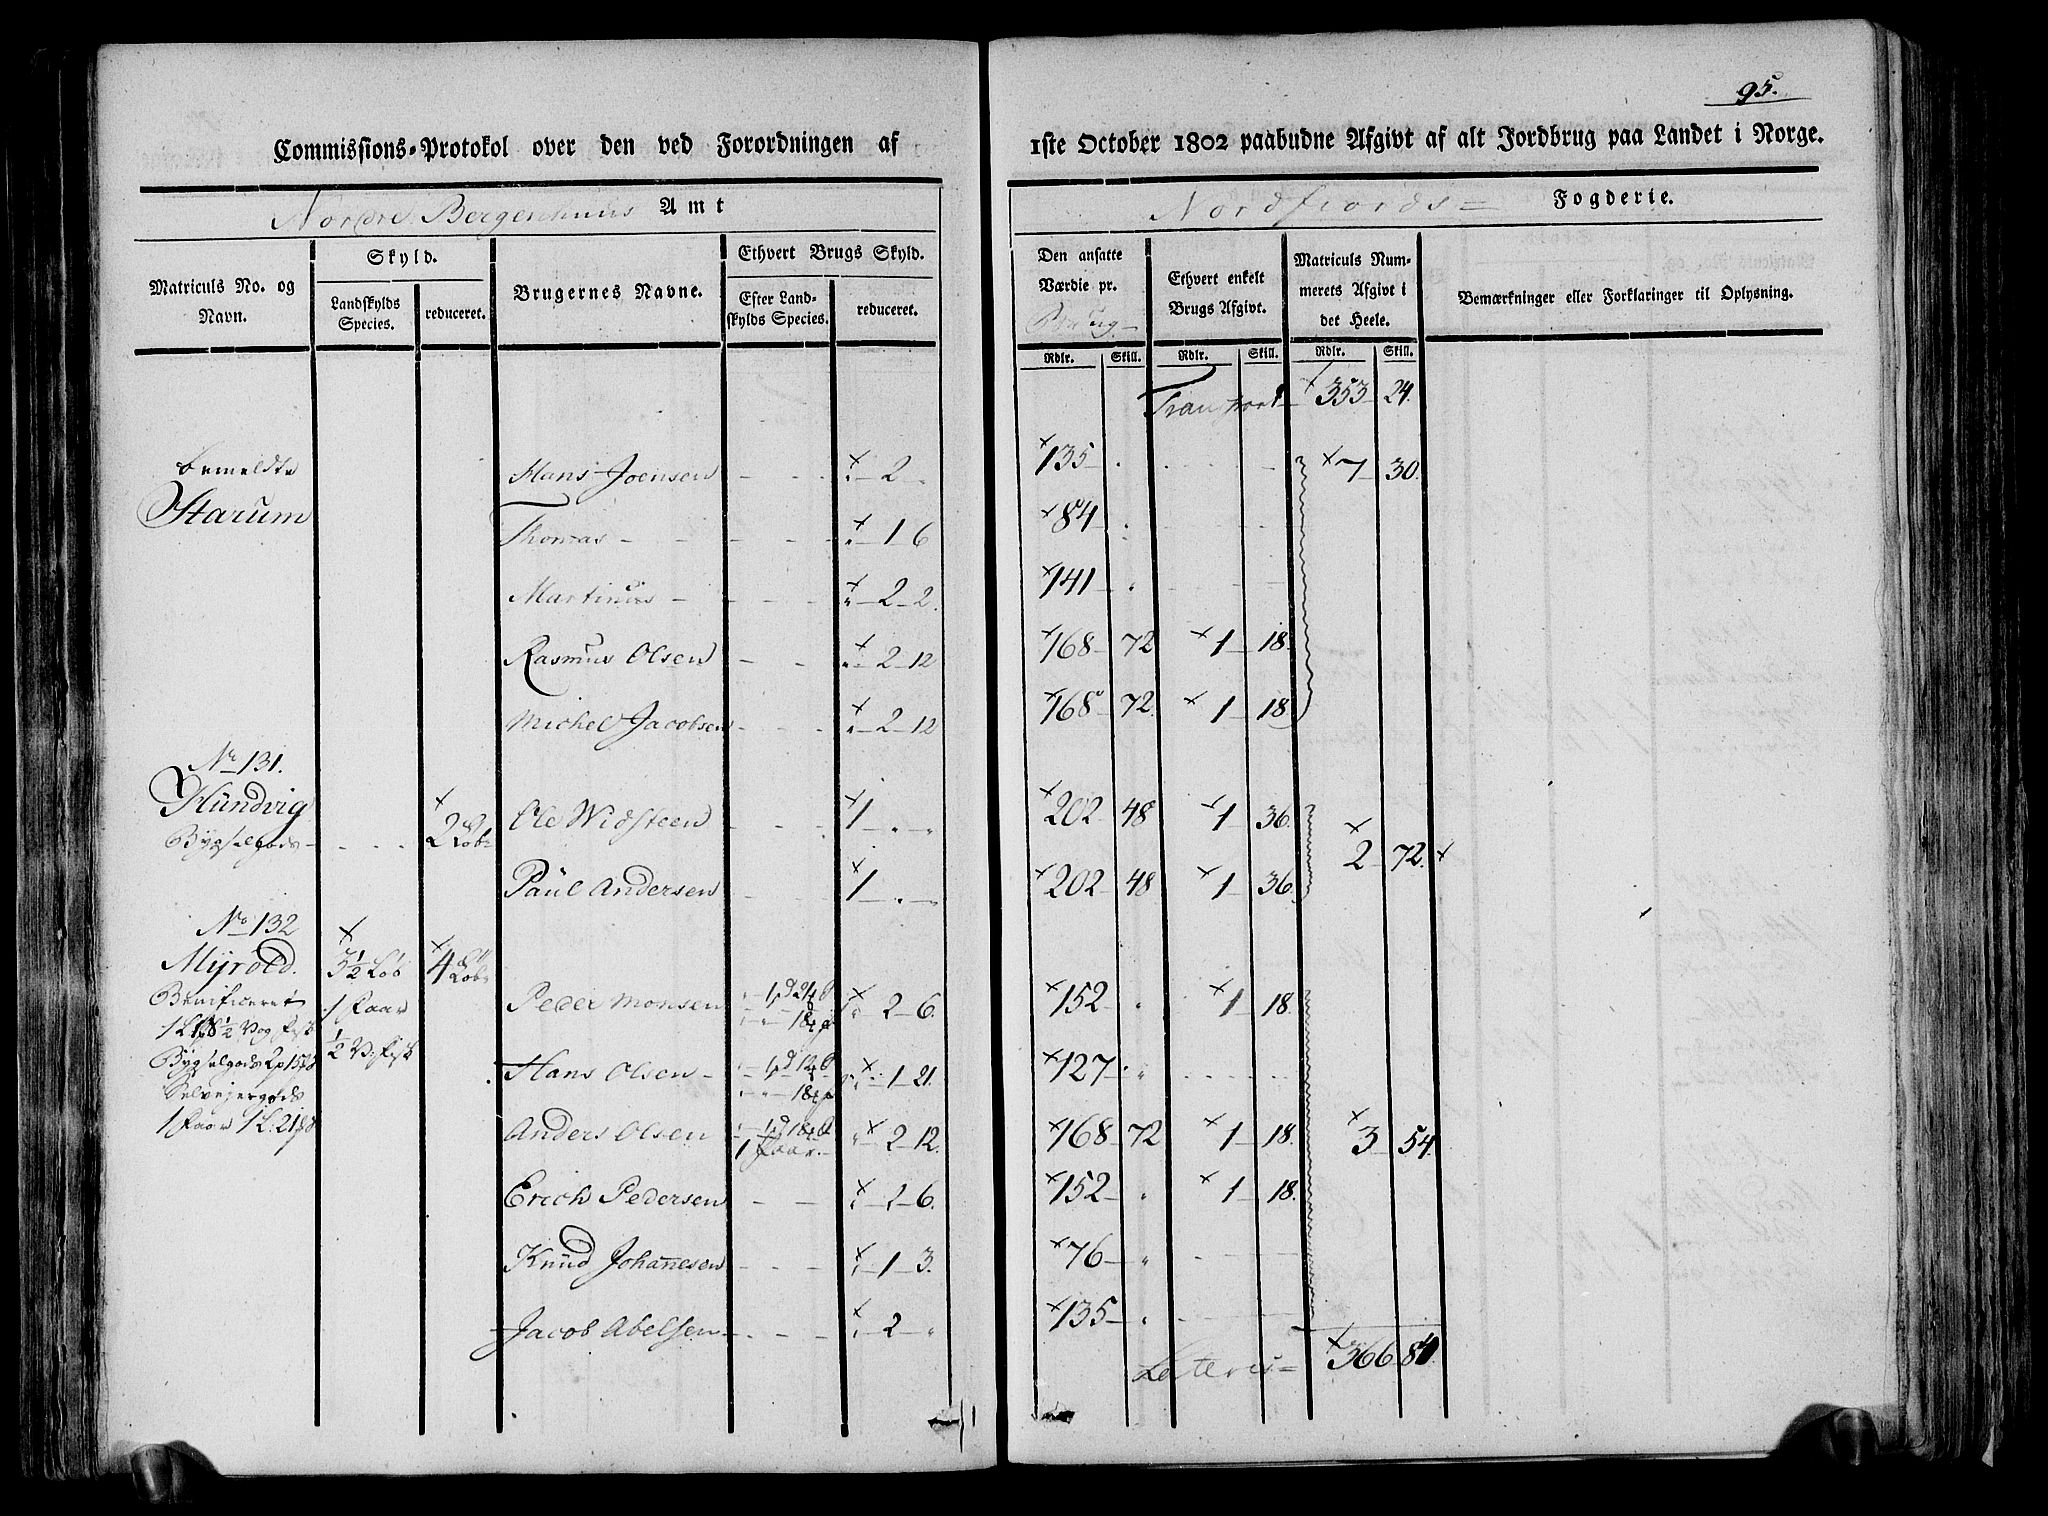 95.
Commissions-Protokol over den ved Forordningen af 1ste October 1802 paabudne Afgivt af alt Jordbrug paa Landet i Norge.
Nordre Bergenhuus Amt Nordfiords= Fogderie.
Matriculs No. og Navn.
Skyld.
Landskylds Species.
reduceret.
Brugernes Navne.
Ethvert Brugs Skyld.
Efter Landskylds Species.
reduceret.
Den ansatte Værdie pr. Brug
Ethvert enkelt Brugs Afgivt.
Matriculs Nummerets Afgivt i det Heele.
Bemærkninger eller Forklaringer til Oplysning.
Rdlr. Skill. Rdlr. Skill. Rdlr. Skill.
Transport 353 24.
bemeldte Starum Hans Joensen 2 135 7 30.
Thomas 1 6 84
Martinus 2 2. 141
Rasmus Olsen 2 12 168 72 1 18.
Michel Jacobsen 2 12 168 72. 1 18
No 131.
Hundvig 2 Løb Ole Widsteen 1 202 48 1 36. 2 72.
Bygselgods
Paul Andersen 1 202 48 1 36.
No 132
Myrold. 3½ Løb 4 Løb
Benificeret 1 Faar Peder Monsen 2 6. 152 1 18.
½ V. fisk
Bygselgods
Hans Olsen 1 21. 127
Selvejergods
1 Faar
Anders Olsen 1 Faar. 2 12. 168 72 1 18. 3 54.
Erich Pedersen 2 6. 152 1 18.
Knud Johannesen 1 3. 76
Jacob Abelsen 2 135
Lateris= 366